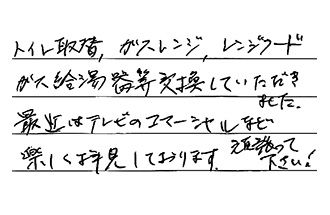 トイレ取替，ガスレンジ，レンジフード
ガス給湯器等交換していただき
ました．
最近はテレビのコマーシャルなど
楽しく拝見しております．頑張って
下さい！